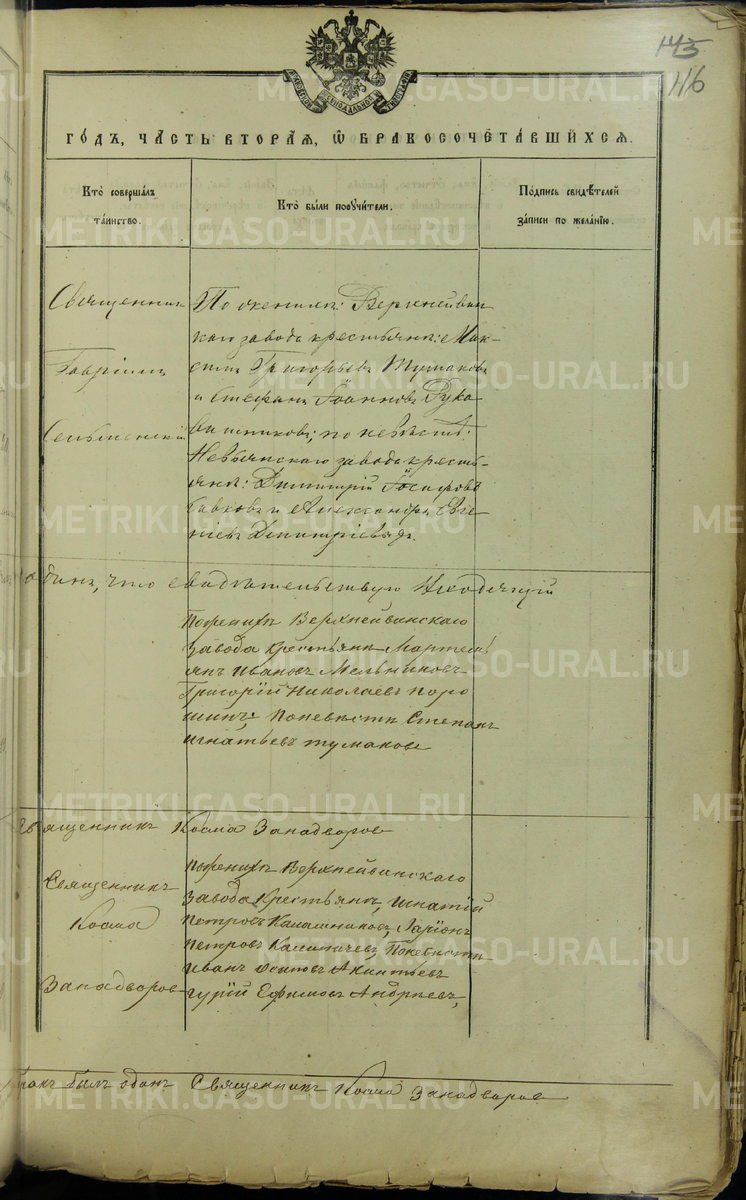 145
116
ГО́ДЪ, ЧА́СТЬ ВТОРА́Я, Ѽ БРАКОСОЧЕТА́ВШИХСЯ.
Кто̀ соверша́лъ
та́инство.
Кто̀ бы́ли поꙋчи́тели.
По́дпись свидѣ́телей
за́писи по жела́нїю.
Священникъ
Гавріилъ
По женихѣ: Верхнейвин
скаго завода крестьяне: Мак-
симъ Григорьевъ Тумаковъ
и Стефанъ Іоанновъ Рука
вишниковъ; по невѣстѣ:
Невьянскаго завода кресть-
яне: Димитрій Іосифовъ
и Александръ Евге
ніевъ
одинъ, что свидѣтельствую
Поженихѣ Верхнейвинскаго
Завода Крестьяне Мартемь
янъ Ивановъ Мельниковъ
Григорій Николаевъ Поро
шинъ: Поневѣсти Степанъ
Игнатьевъ Тумаковъ
Священникъ Косма Западворовъ
Священникъ
Косма
Западворовъ
Поженихѣ Верхнейвинскаго
Завода Крестьяне, Игнатій
Петровъ Калашниковъ, Ларіонъ
Петровъ Поневѣсти
Иванъ Осиповъ Акинтьевъ
Гурій Ефимовъ Андреевъ,
бракъ былъ одинъ Священникъ Косма Западворовъ
METRIKI.GASO-URAL.RU